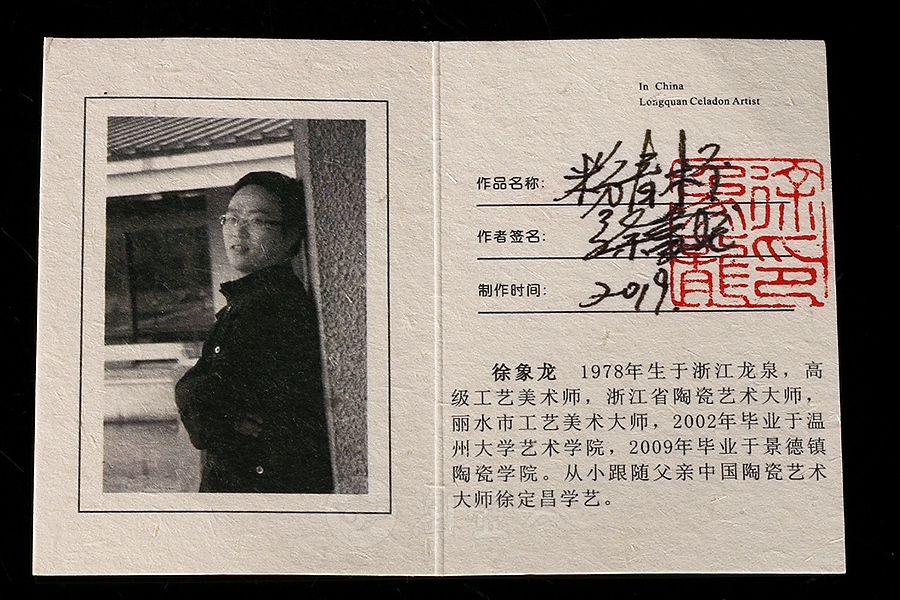 In China
Longquan Celadon Artist
作品名称:
作者签名: 徐象龙
制作时间: 2019.
徐象龙 1978年生于浙江龙泉，高
级工艺美术师，浙江省陶瓷艺术大师，
丽水市工艺美术大师，2002年毕业于温
州大学艺术学院，2009年毕业于景德镇
陶瓷学院。从小跟随父亲中国陶瓷艺术
大师徐定昌学艺。